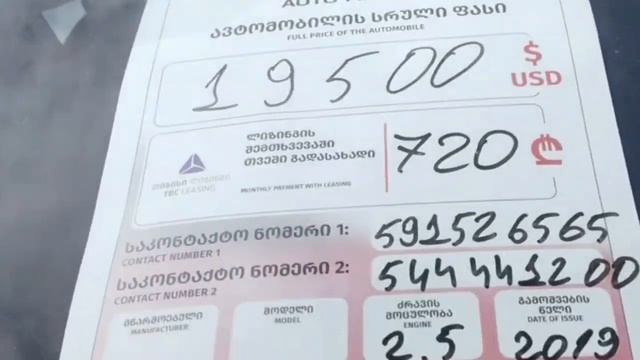 ᲐᲕᲢᲝᲛᲝᲑᲘᲚᲘᲡ ᲡᲠᲣᲚᲘ ᲤᲐᲡᲘ
FULL PRICE OF THE AUTOMOBILE
19500 $ USD
ᲚᲘᲖᲘᲜᲒᲘᲡ
ᲨᲔᲛᲗᲮᲕᲔᲕᲐᲨᲘ
ᲗᲕᲔᲨᲘ ᲒᲐᲓᲐᲡᲐᲮᲐᲓᲘ
720 ₾
ᲗᲘᲑᲘᲡᲘ ᲚᲘᲖᲘᲜᲒᲘ
TBC LEASING
MONTHLY PAYMENT WITH LEASING
ᲡᲐᲙᲝᲜᲢᲐᲥᲢᲝ ᲜᲝᲛᲔᲠᲘ 1: 591526565
CONTACT NUMBER 1
ᲡᲐᲙᲝᲜᲢᲐᲥᲢᲝ ᲜᲝᲛᲔᲠᲘ 2: 544441200
CONTACT NUMBER 2
ᲛᲬᲐᲠᲛᲝᲔᲑᲔᲚᲘ
MANUFACTURER
ᲛᲝᲓᲔᲚᲘ
MODEL
ᲫᲠᲐᲕᲘᲡ
ᲛᲝᲪᲣᲚᲝᲑᲐ
ENGINE
2.5
ᲒᲐᲛᲝᲨᲕᲔᲑᲘᲡ
ᲬᲔᲚᲘ
DATE OF ISSUE
2019